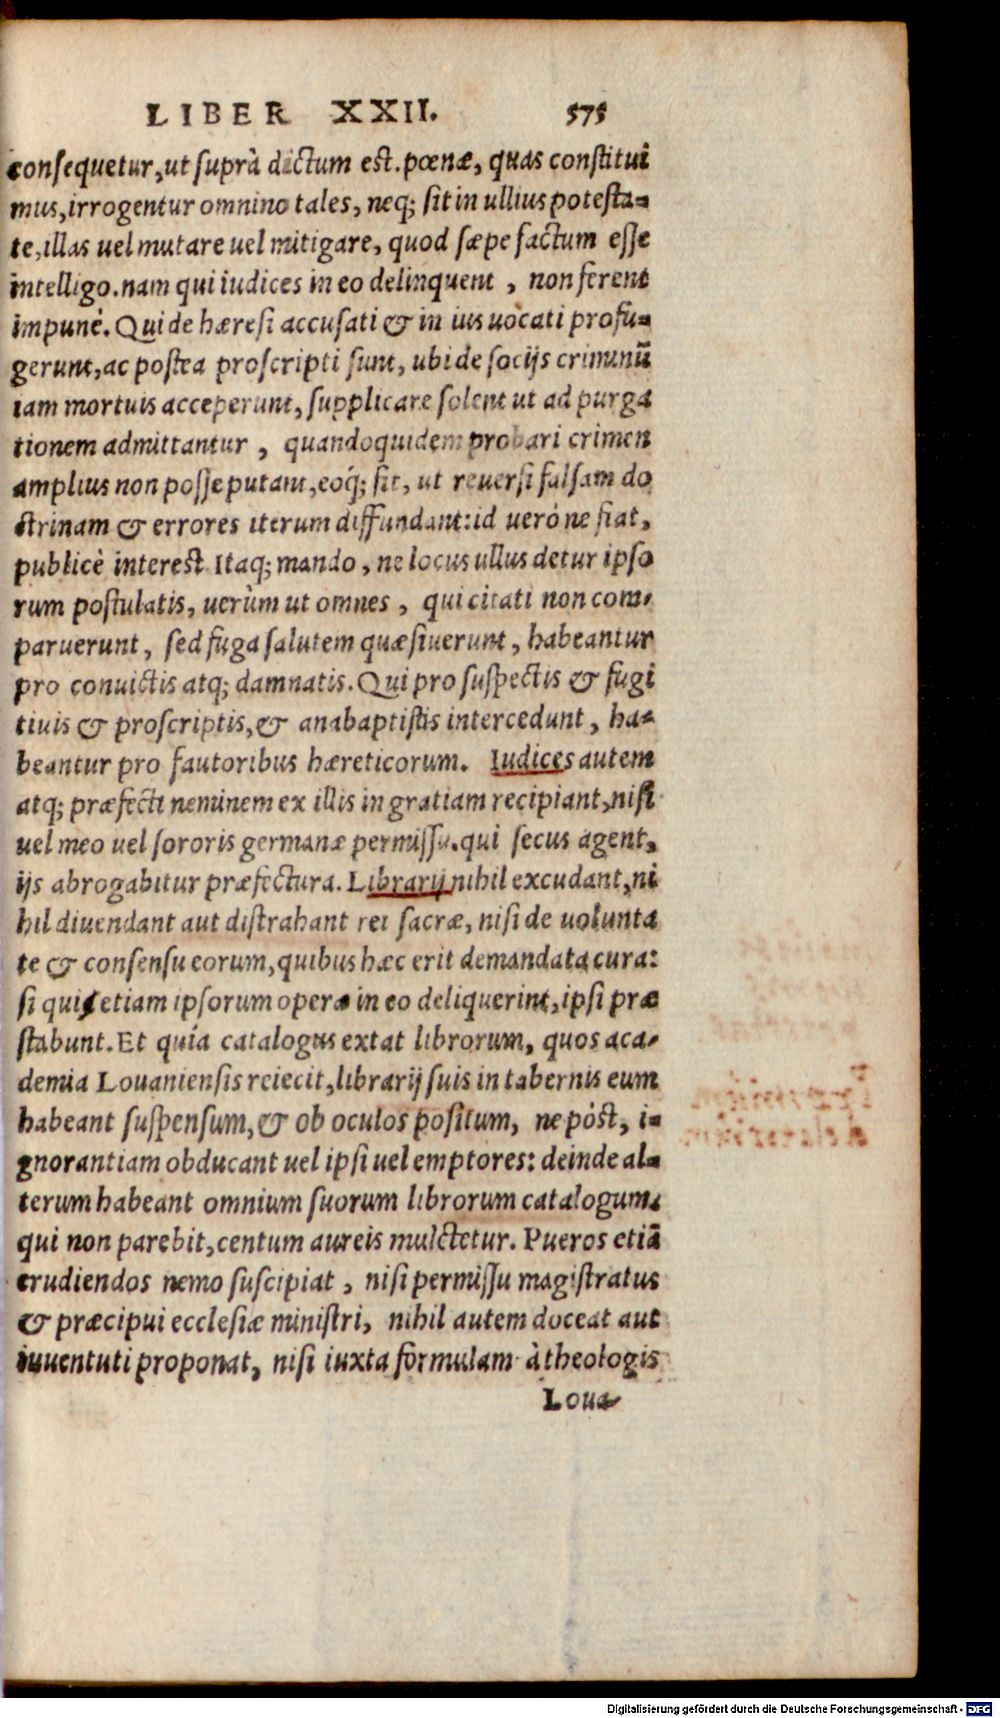 LIBER XXII. 575
consequetur, ut suprà dictum est. pœnæ, quas constitui
mus, irrogentur omnino tales, neq; sit in ullius potesta-
te, illas uel mutare uel mitigare, quod sæpe factum esse
intelligo. nam qui iudices in eo delinquent, non ferent
impunè. Qui de hæresi accusati & in ius uocati profu-
gerunt, ac postea proscripti sunt, ubi de socijs criminū
iam mortuis acceperunt, supplicare solent ut ad purga
tionem admittantur, quandoquidem probari crimen
amplius non posse putant, eoq́; fit, ut reuersi falsam do
ctrinam & errores iterum diffundant: id uerò ne fiat,
publicè interest Itaq; mando, ne locus ullus detur ipso
rum postulatis, uerùm ut omnes, qui citati non com-
paruerunt, sed fuga salutem quæsiuerunt, habeantur
pro conuictis atq; damnatis. Qui pro suspectis & fugi
tiuis & proscriptis, & anabaptistis intercedunt, ha-
beantur pro fautoribus hæreticorum. Iudices autem
atq; præfecti neminem ex illis in gratiam recipiant, nisi
uel meo uel sororis germanæ permissu. qui secus agent,
ijs abrogabitur præfectura. Librarij nihil excudant, ni
hil diuendant aut distrahant rei sacræ, nisi de uolunta
te & consensu eorum, quibus hæc erit demandata cura:
si qui etiam ipsorum opera in eo deliquerint, ipsi præ
stabunt. Et quia catalogus extat librorum, quos aca-
demia Louaniensis reiecit, librarij suis in tabernis eum
habeant suspensum, & ob oculos positum, ne pòst, i-
gnorantiam obducant uel ipsi uel emptores: deinde al-
terum habeant omnium suorum librorum catalogum.
qui non parebit, centum aureis mulctetur. Pueros etiā
erudiendos nemo suscipiat, nisi permissu magistratus
& præcipui ecclesiæ ministri, nihil autem doceat aut
iuuentuti proponat, nisi iuxta formulam à theologis
Loua-
Digitalisierung gefördert durch die Deutsche Forschungsgemeinschaft - DFG